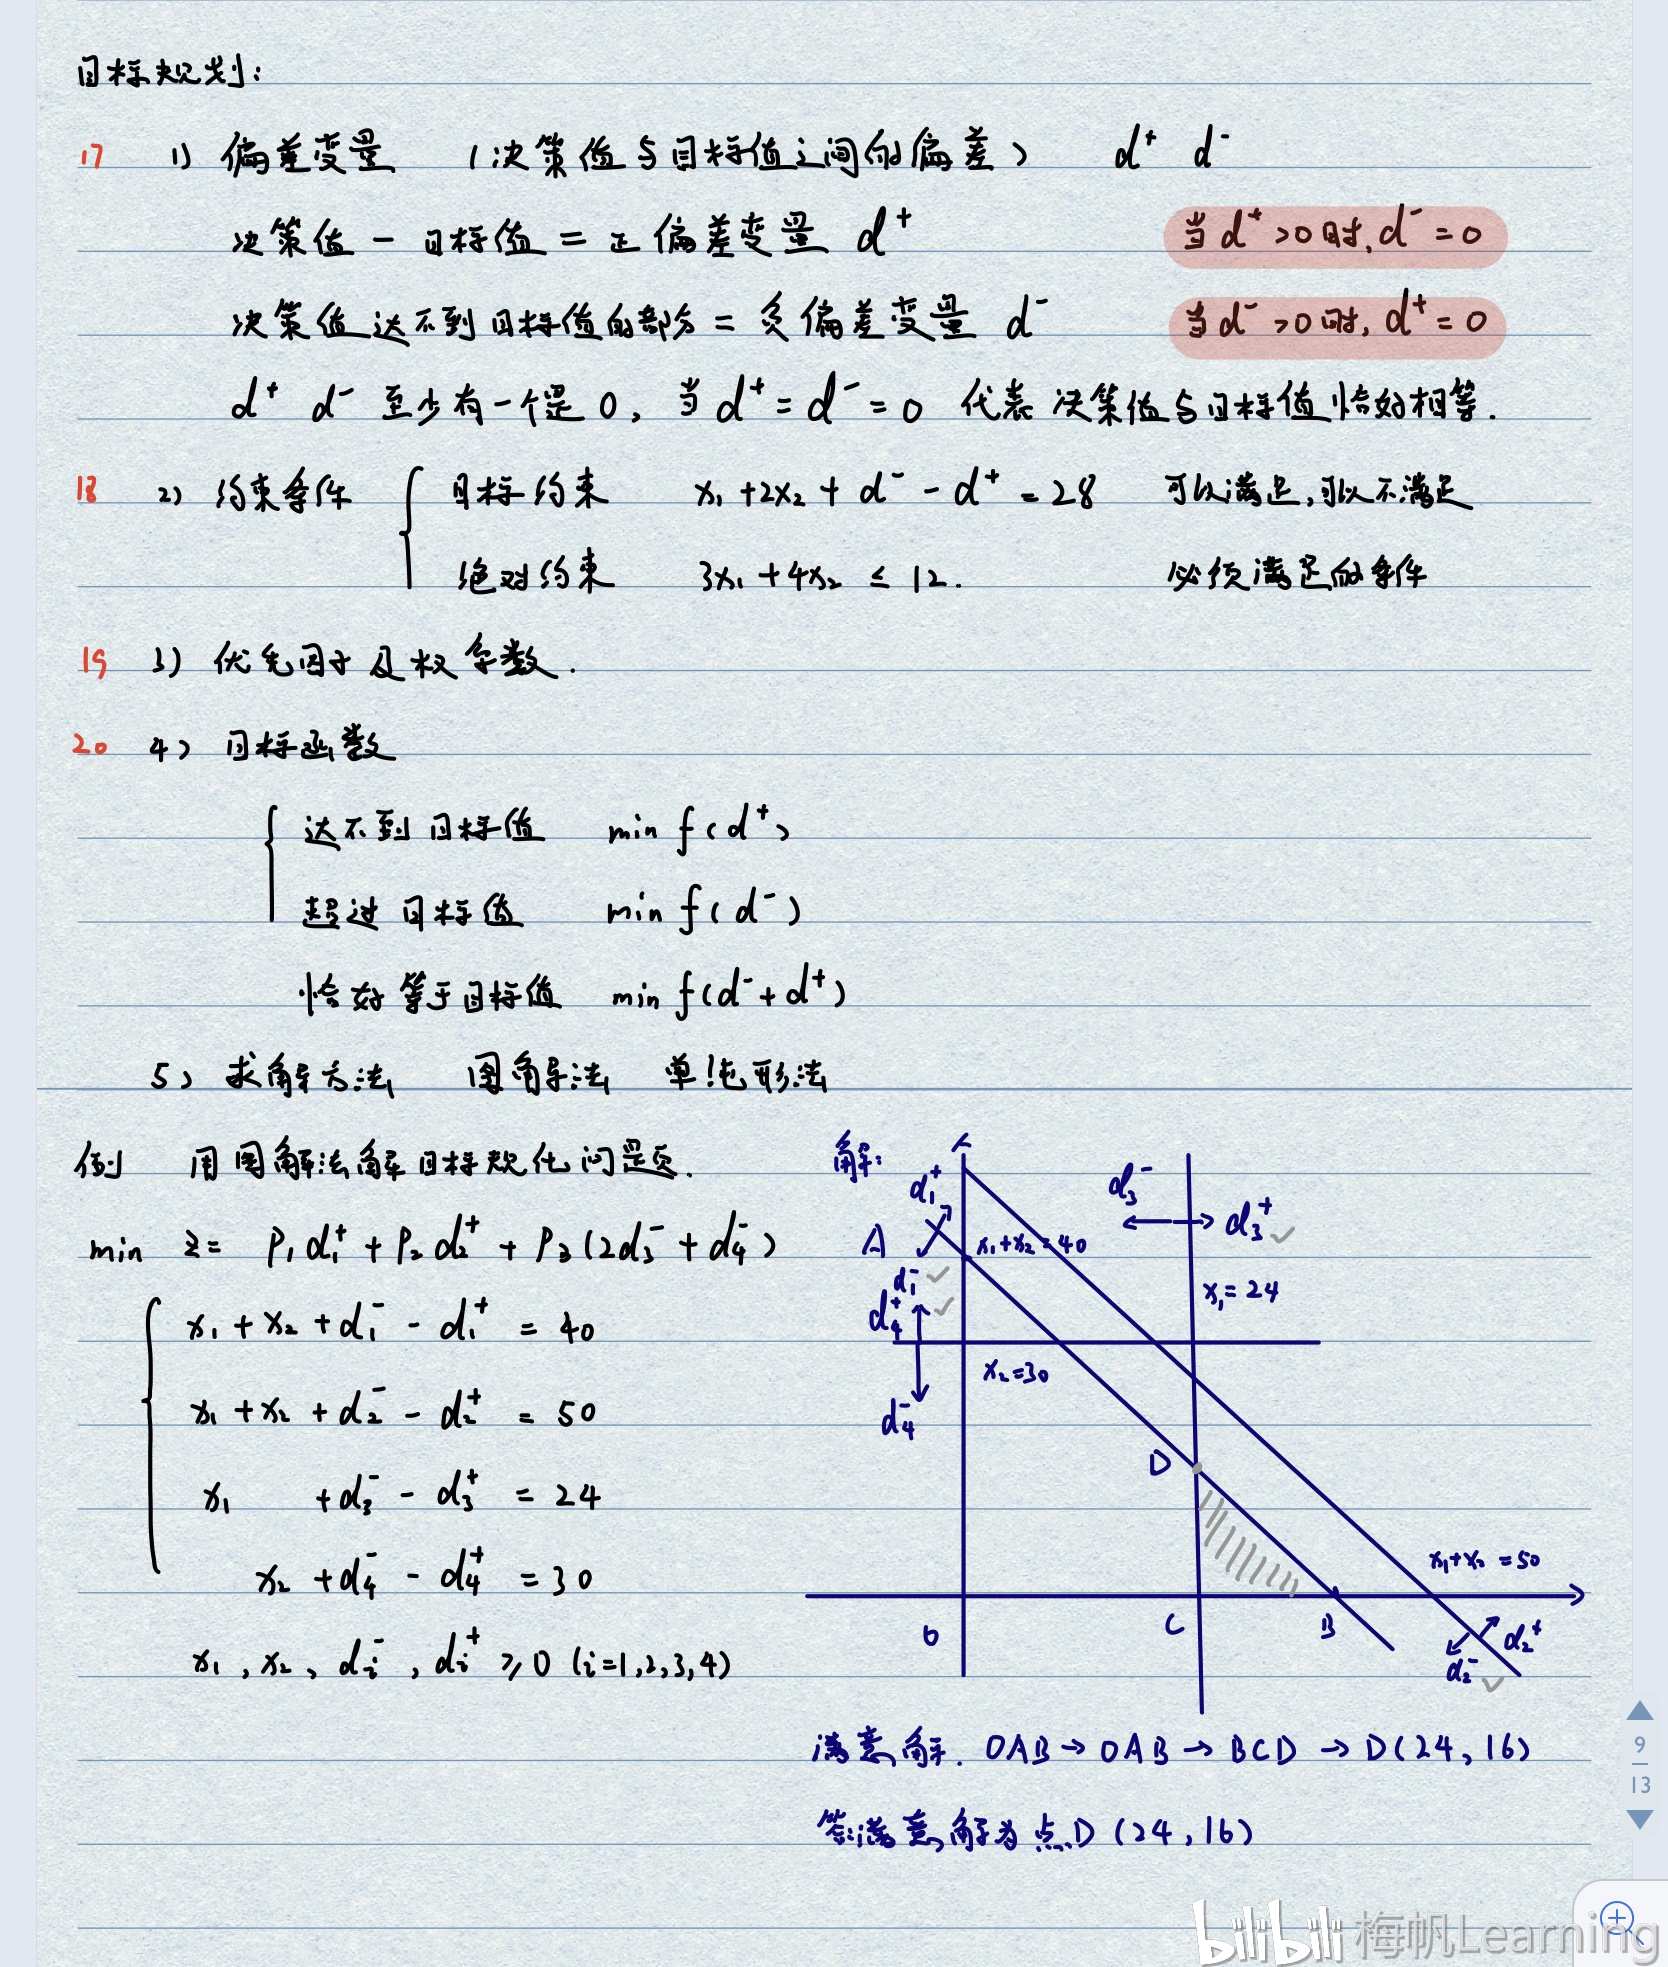 目标规划:
17 1) 偏差变量 (决策值与目标值之间的偏差) d⁺ d⁻
决策值 - 目标值 = 正偏差变量 d⁺ 当d⁺>0时,d⁻=0
决策值达不到目标值的部分 = 负偏差变量 d⁻ 当d⁻>0时,d⁺=0
d⁺ d⁻ 至少有一个是0, 当d⁺=d⁻=0 代表决策值与目标值恰好相等.
18 2) 约束条件 { 目标约束 x₁+2x₂+d⁻-d⁺=28 可以满足,可以不满足
绝对约束 3x₁+4x₂≤12. 必须满足的条件
19 3) 优先因子及权系数.
20 4) 目标函数
达不到目标值 min f(d⁺)
超过目标值 min f(d⁻)
恰好等于目标值 min f(d⁻+d⁺)
5) 求解方法 图解法 单纯形法
例 用图解法解目标规化问题.
min z= P₁d₁⁺+P₂d₂⁺+P₃(2d₃⁻+d₄⁻)
x₁+x₂+d₁⁻-d₁⁺=40
x₁+x₂+d₂⁻-d₂⁺=50
x₁ +d₃⁻-d₃⁺=24
x₂+d₄⁻-d₄⁺=30
x₁,x₂,dᵢ⁻,dᵢ⁺≥0 (i=1,2,3,4)
解:
d₁⁺
d₃⁻
d₃⁺
A
x₁+x₂=40
d₁⁻
x₁=24
d₄⁺
x₂=30
d₄⁻
D
x₁+x₂=50
0
C
B
d₂⁺
d₂⁻
满意解. OAB→OAB→BCD→D(24,16)
答:满意解为点D(24,16)
9
13
bilibili 梅帆Learning